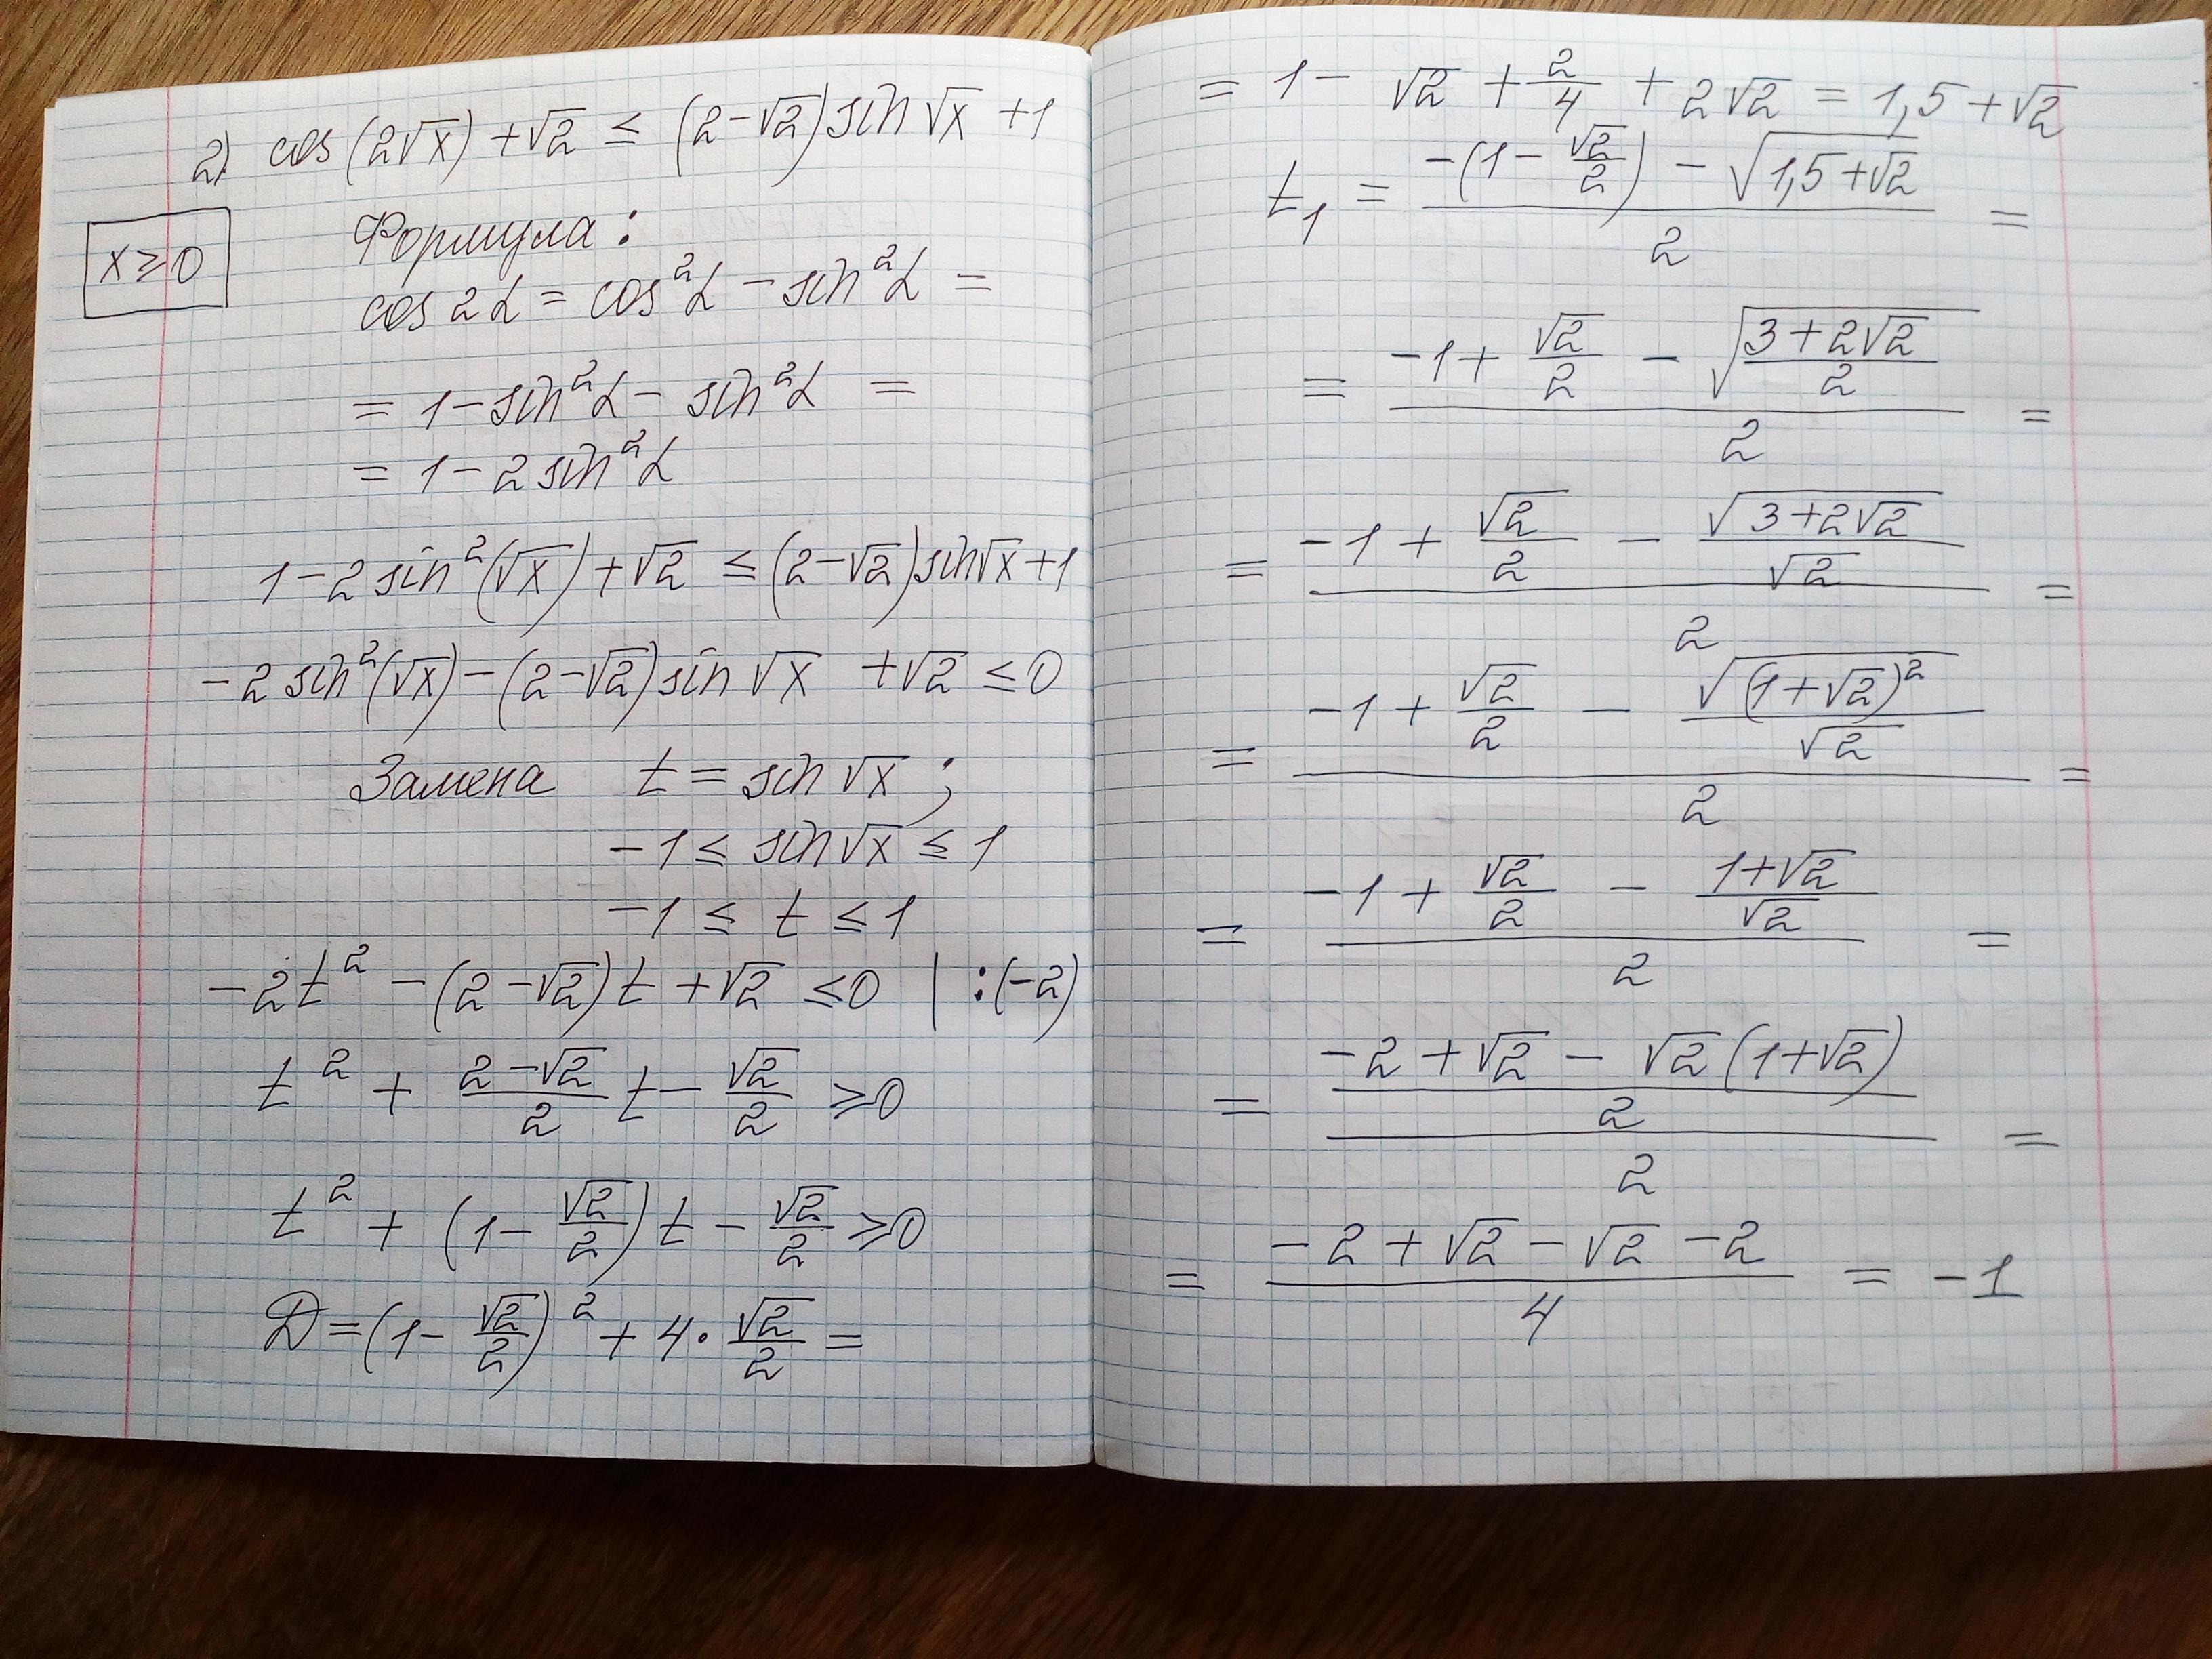 2) cos(2√x) + √2 ≤ (2-√2) sin √x + 1
x ≥ 0
Формула:
cos 2α = cos²α - sin²α =
= 1 - sin²α - sin²α =
= 1 - 2 sin²α
1 - 2 sin²(√x) + √2 ≤ (2-√2) sin√x + 1
-2 sin²(√x) - (2-√2) sin √x + √2 ≤ 0
Замена t = sin √x ;
-1 ≤ sin √x ≤ 1
-1 ≤ t ≤ 1
-2t² - (2-√2)t + √2 ≤ 0 | :(-2)
t² + (2-√2)/2 t - √2/2 ≥ 0
t² + (1 - √2/2) t - √2/2 ≥ 0
D = (1 - √2/2)² + 4 · √2/2 =
= 1 - √2 + 2/4 + 2√2 = 1,5 + √2
t₁ = (-(1 - √2/2) - √(1,5 + √2))/2 =
= (-1 + √2/2 - √((3 + 2√2)/2))/2 =
= (-1 + √2/2 - √(3 + 2√2)/√2)/2 =
= (-1 + √2/2 - √((1 + √2)²)/√2)/2 =
= (-1 + √2/2 - (1 + √2)/√2)/2 =
= ((-2 + √2 - √2(1 + √2))/2)/2 =
= (-2 + √2 - √2 - 2)/4 = -1